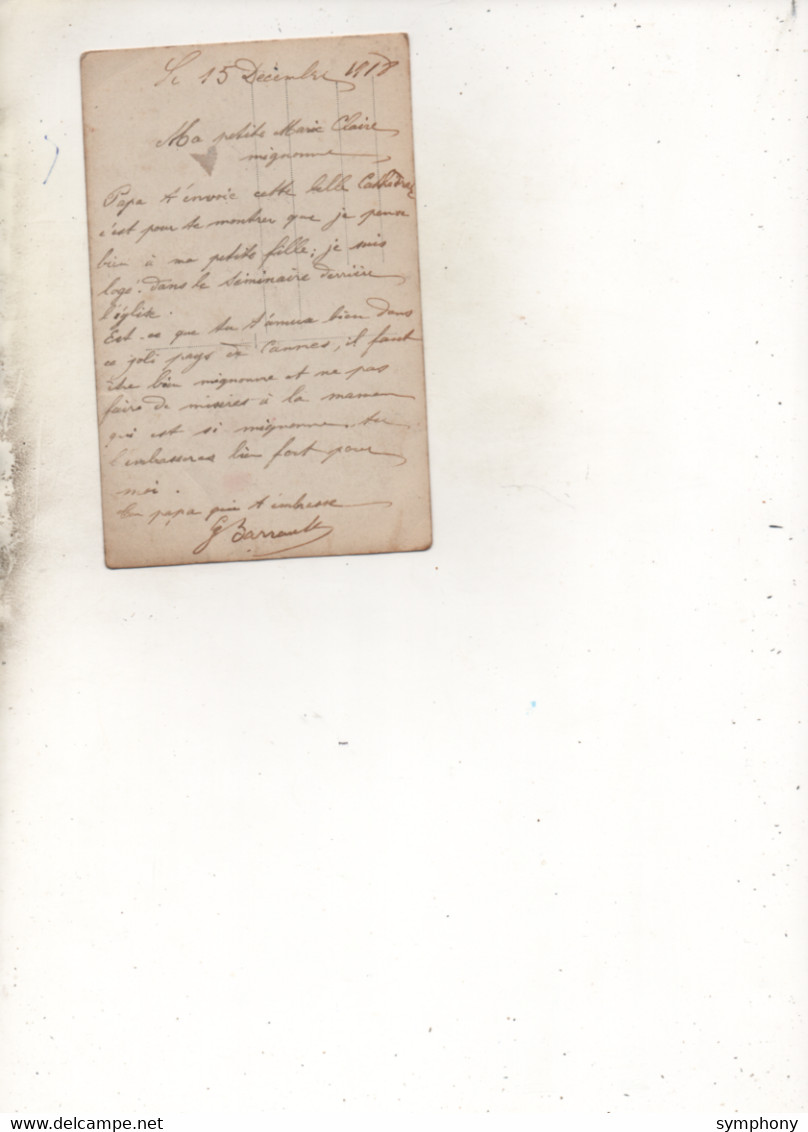 Le 15 Décembre 1918
Ma petite Marie Claire
mignonne
Papa t'envoie cette belle Cathédrale
c'est pour te montrer que je pense
bien à ma petite fille ; je suis
logé dans le Séminaire derrière
l'église.
Est-ce que tu t'amuse bien dans
ce joli pays de Cannes, il faut
être bien mignonne et ne pas
faire de misères à la maman
qui est si mignonne. tu
l'embrasseras bien fort pour
moi.
Ton papa qui t'embrasse
G Barrault
delcampe.net
symphony